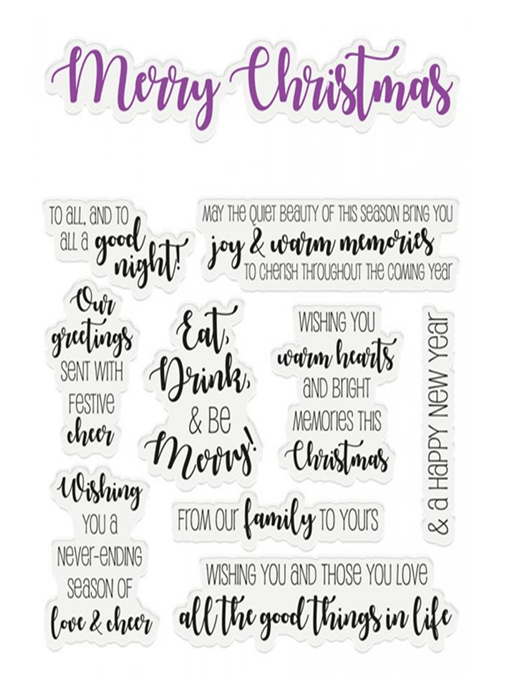 Merry Christmas
TO ALL, AND TO
ALL A good
night!
MAY THE QUIET BEAUTY OF THIS SEASON BRING YOU
joy & warm memories
TO CHERISH THROUGHOUT THE COMING YEAR
Our
greetings
SENT WITH
FESTIVE
cheer
Eat,
Drink,
& BE
Merry!
WISHING YOU
warm hearts
AND BRIGHT
MEMORIES THIS
Christmas
& A HAPPY NEW YEAR
Wishing
YOU A
NEVER-ENDING
SEASON OF
love & cheer
FROM OUR family TO YOURS
WISHING YOU AND THOSE YOU LOVE
all the good things in life